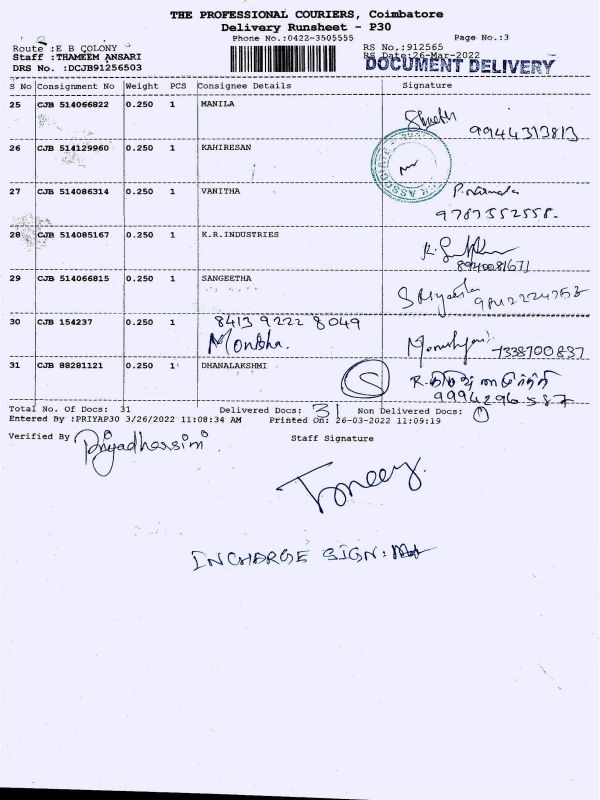 THE PROFESSIONAL COURIERS, Coimbatore
Delivery Runsheet - P30
Phone No.:0422-3505555 Page No.:3
Route :E B COLONY RS No.:912565
Staff :THAMEEM ANSARI RS Date:26-Mar-2022
DRS No. :DCJB91256503 DOCUMENT DELIVERY
S No Consignment No Weight PCS Consignee Details Signature
25 CJB 514066822 0.250 1 MANILA
9944313813
26 CJB 514129960 0.250 1 KAHIRESAN
27 CJB 514086314 0.250 1 VANITHA
9787352558.
28 CJB 514085167 0.250 1 K.R.INDUSTRIES
8940081671
29 CJB 514066815 0.250 1 SANGEETHA
30 CJB 154237 0.250 1 8413 9222 8049
7338700837
31 CJB 88281121 0.250 1 DHANALAKSHMI
9994296587
Total No. Of Docs: 31 Delivered Docs: 31 Non Delivered Docs: 0
Entered By :PRIYAP30 3/26/2022 11:08:34 AM Printed On: 26-03-2022 11:09:19
Verified By Priyadharsini Staff Signature
INCHARGE SIGN: